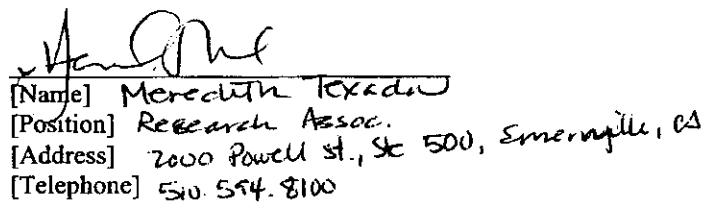 [Name] Meredith Texada
[Position] Research Assoc.
[Address] 2000 Powell st., Ste 500, Emeryville, CA
[Telephone] 510.594.8100